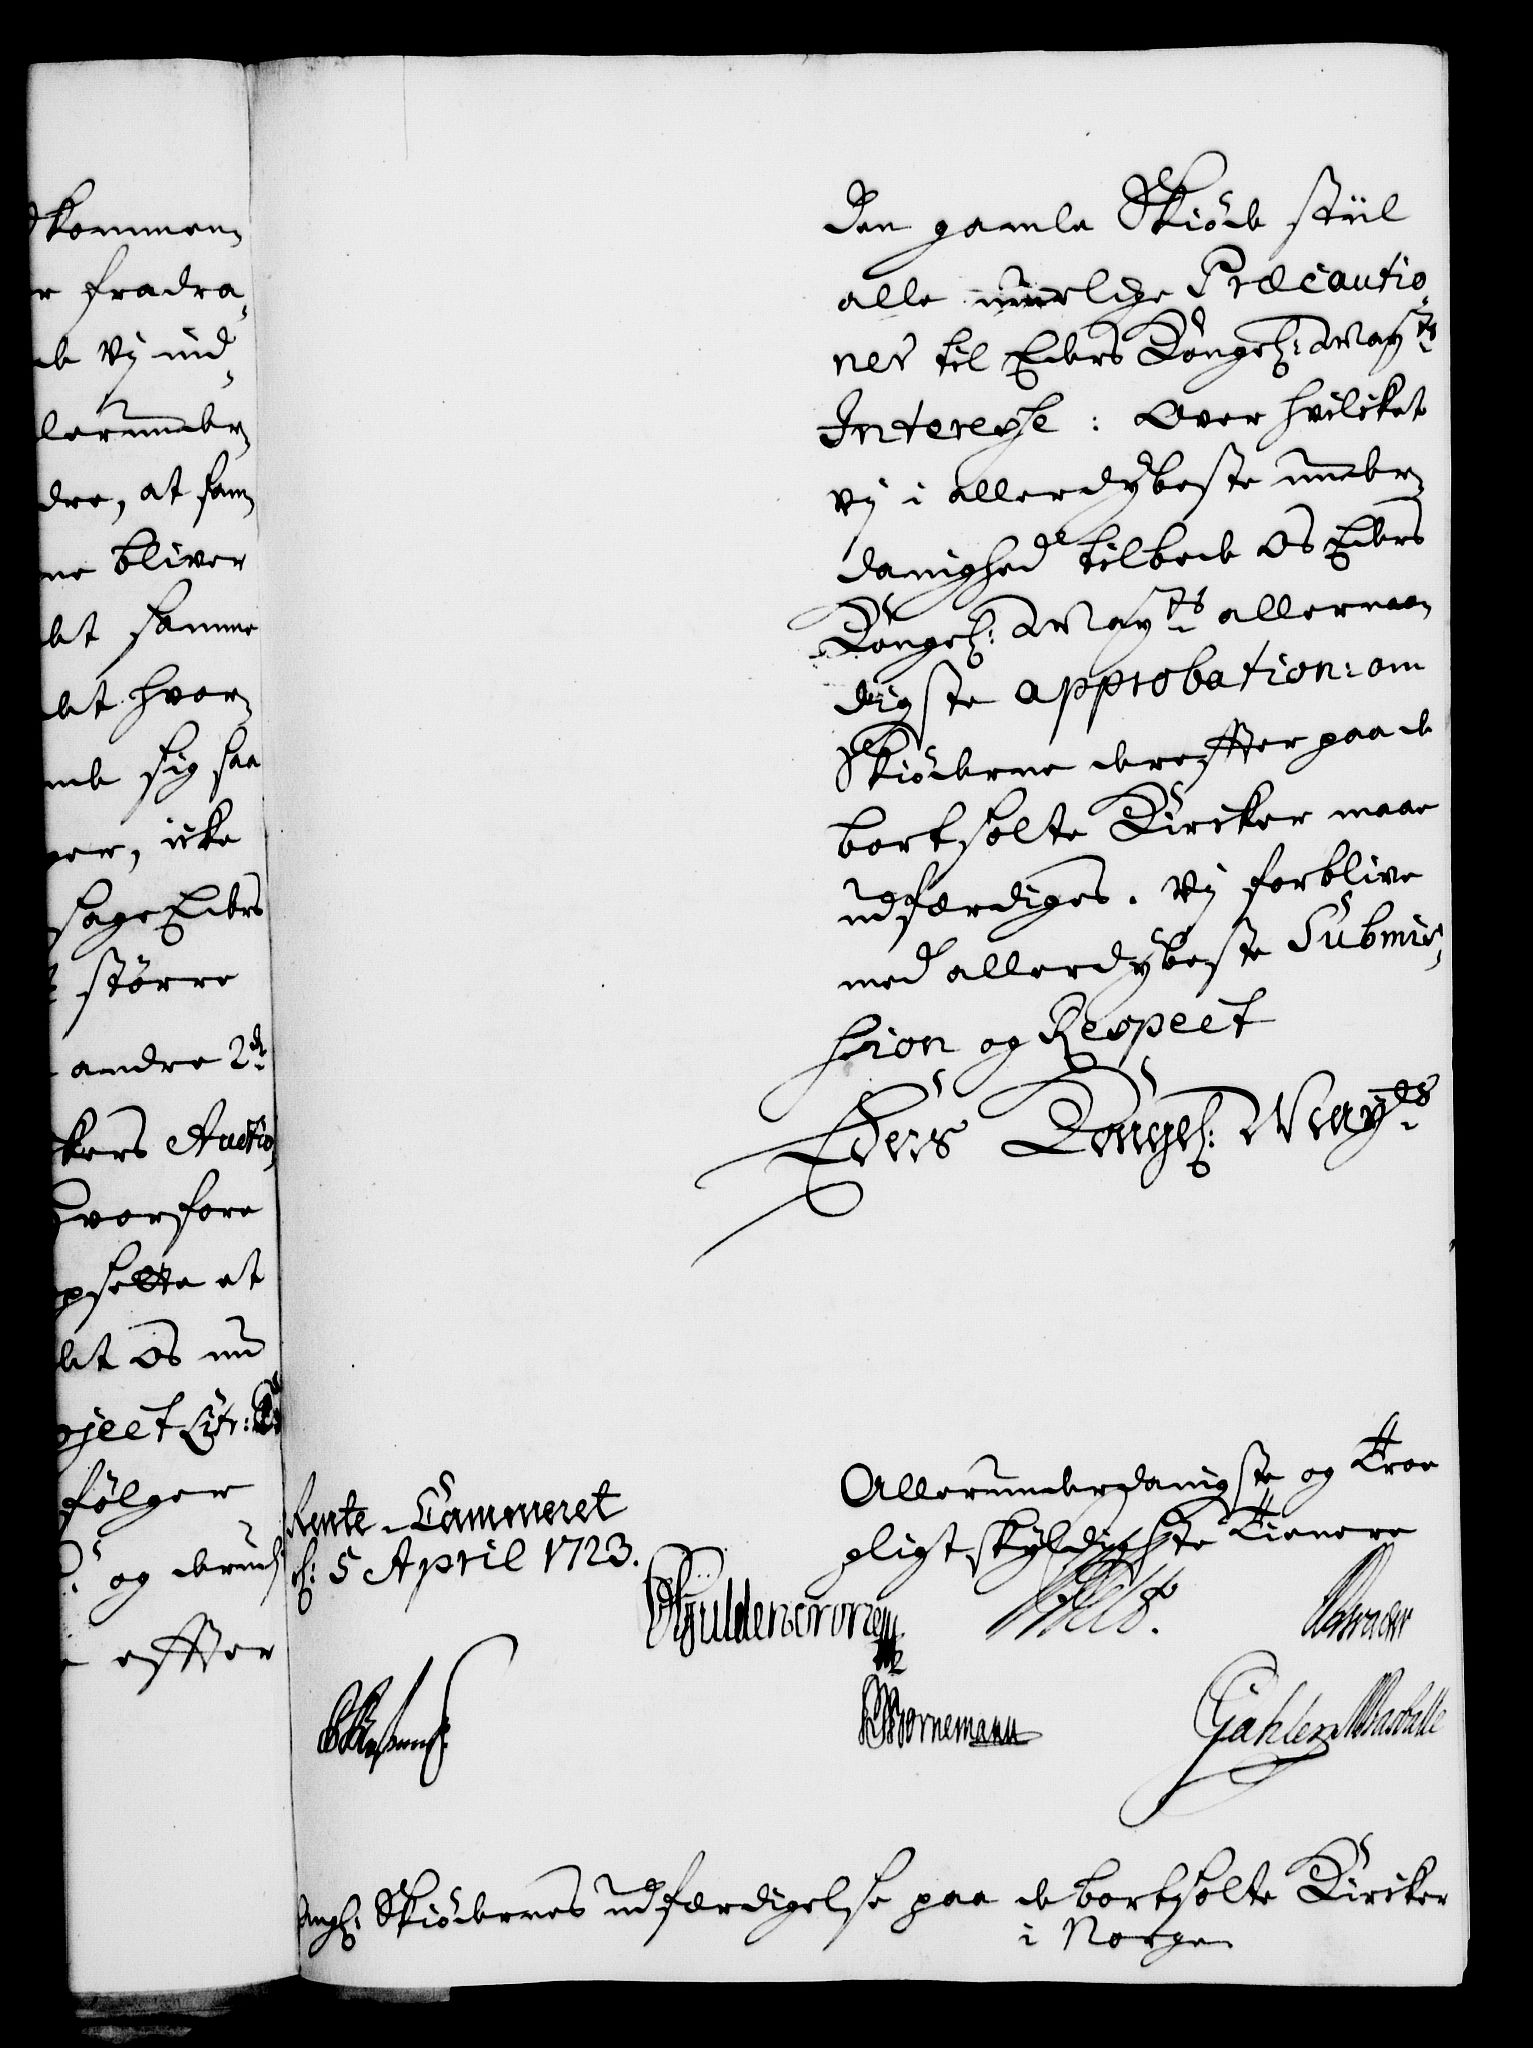 dkommen,
r fradra,
de vj ind,
lerunder,
dre, at sam,
ne bliver
det samme
det hvor,
nde sig saa
per, icke
sage Eders
större
andre 2de
kers Auctio,
hvorfore
psette et
det os nu
oject Litr:
fölger
og derudj
effter
den gamle Skiöde stiil
alle muelige Præcautio,
ner til Eders Kongel: Mayts
Interesse: Over hvilcket
vj i allerdybeste under,
danighed tilbede os Eders
Kongel: Mayts allernaa,
digste approbation: om
Skiöderne dereffter paa de
bortsolte Kircker maae
udfærdiges. Vj forblive
med allerdybeste Submis,
sion og Respect
Eders Kongel: Mayts
Rente-Cammeret
d: 5 April 1723.
Allerunderdanigste og Troe
pligtskyldigste Tienere
Gÿldencronem
Bornemann
Gahler
angl: Skiödernes udfærdigelse paa de bortsolte Kircker
i Norge.